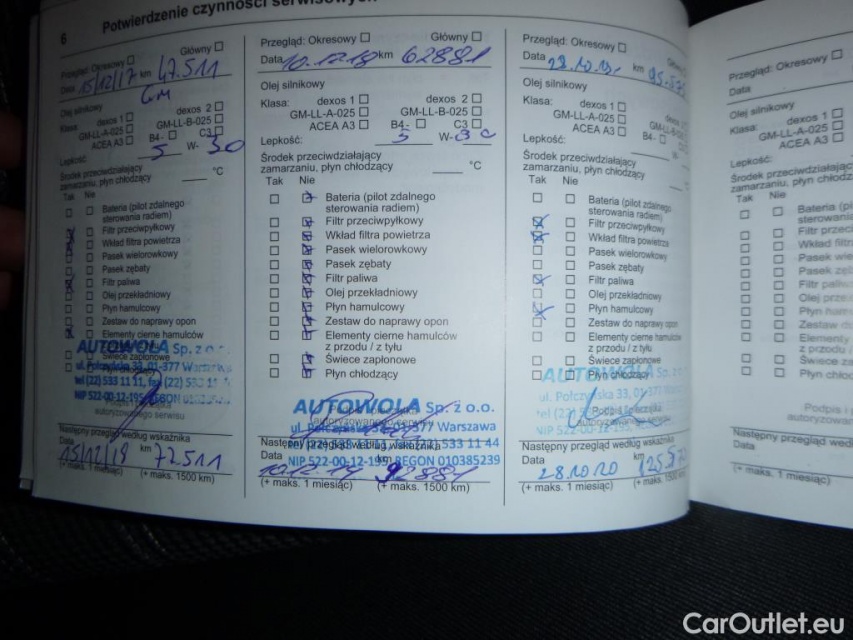 6 Potwierdzenie czynności serwisowych
Przegląd: Okresowy Główny
Data 15/12/17 km 47.511
GM
Olej silnikowy
Klasa: dexos 1 dexos 2
GM-LL-A-025 GM-LL-B-025
ACEA A3 B4- C3
Lepkość: 5 W- 30
Środek przeciwdziałający
zamarzaniu, płyn chłodzący °C
Tak Nie
Bateria (pilot zdalnego
sterowania radiem)
Filtr przeciwpyłkowy
Wkład filtra powietrza
Pasek wielorowkowy
Pasek zębaty
Filtr paliwa
Olej przekładniowy
Płyn hamulcowy
Zestaw do naprawy opon
Elementy cierne hamulców
AUTOWOLA Sp. z o.o.
Świece zapłonowe
ul. Połczyńska 33, 01-377
Płyn chłodzący
tel (22) 533 11 11, fax (22)
NIP 522-00-12-195 REGON
autoryzowanego serwisu
Następny przegląd według wskaźnika
Data 15/12/19 km 72.511
(+ maks. 1 miesiąc) (+ maks. 1500 km)
Przegląd: Okresowy Główny
Data 10.12.18 km 62881
Olej silnikowy
Klasa: dexos 1 dexos 2
GM-LL-A-025 GM-LL-B-025
ACEA A3 B4- C3
Lepkość: 5 W- 30
Środek przeciwdziałający
zamarzaniu, płyn chłodzący °C
Tak Nie
Bateria (pilot zdalnego
sterowania radiem)
Filtr przeciwpyłkowy
Wkład filtra powietrza
Pasek wielorowkowy
Pasek zębaty
Filtr paliwa
Olej przekładniowy
Płyn hamulcowy
Zestaw do naprawy opon
Elementy cierne hamulców
z przodu / z tyłu
Świece zapłonowe
Płyn chłodzący
AUTOWOLA Sp. z o.o.
ul. Połczyńska 33, 01-377 Warszawa
Następny przegląd według wskaźnika
533 11 44
Data km
NIP 522-00-12-195 REGON 010385239
10.12.19 92881
(+ maks. 1 miesiąc) (+ maks. 1500 km)
Przegląd: Okresowy
Data 29.10.19. km
Olej silnikowy
Klasa: dexos 1
GM-LL-A-025
ACEA A3 B4-
Lepkość:
Środek przeciwdziałający
zamarzaniu, płyn chłodzący
Tak Nie
Bateria (pilot zdalnego
sterowania radiem)
Filtr przeciwpyłkowy
Wkład filtra powietrza
Pasek wielorowkowy
Pasek zębaty
Filtr paliwa
Olej przekładniowy
Płyn hamulcowy
Zestaw do naprawy opon
Elementy cierne hamulców
z przodu / z tyłu
Świece zapłonowe
Płyn chłodzący
AUTOWOLA
ul. Połczyńska 33, 01-377
Następny przegląd według wskaźnika
Data 28.10.20 km
(+ maks. 1 miesiąc) (+ maks. 1500 km)
Przegląd: Okresowy
Data
Olej silnikowy
Klasa: dexos 1
GM-LL-A-025
ACEA A3
Lepkość:
Środek przeciwdziałający
zamarzaniu, płyn chłodzący
Tak Nie
Bateria
Filtr
Wkład
Pasek
Pasek
Filtr
Olej
Płyn
Zestaw
Elementy
z przodu
Świece
Płyn
Podpis i
autoryzowanego
Następny przegląd
Data
(+ maks. 1 miesiąc)
CarOutlet.eu